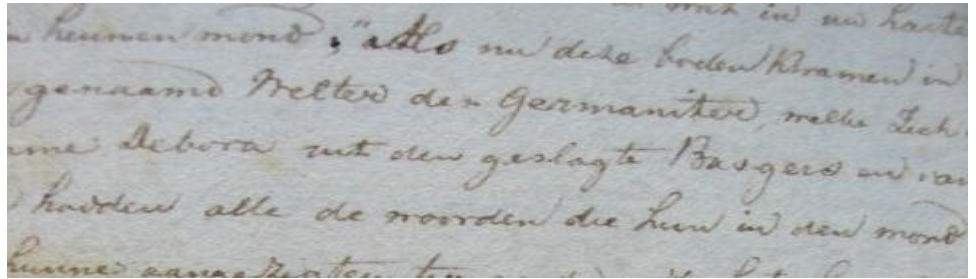 in uw harte
hennen mond, "Als nu deze boden kwamen in
genaamd Welter den Germaniter, welke Zich
Debora uit den geslagte Basgers en van
hadden alle de woorden die hun in den mond
hunne